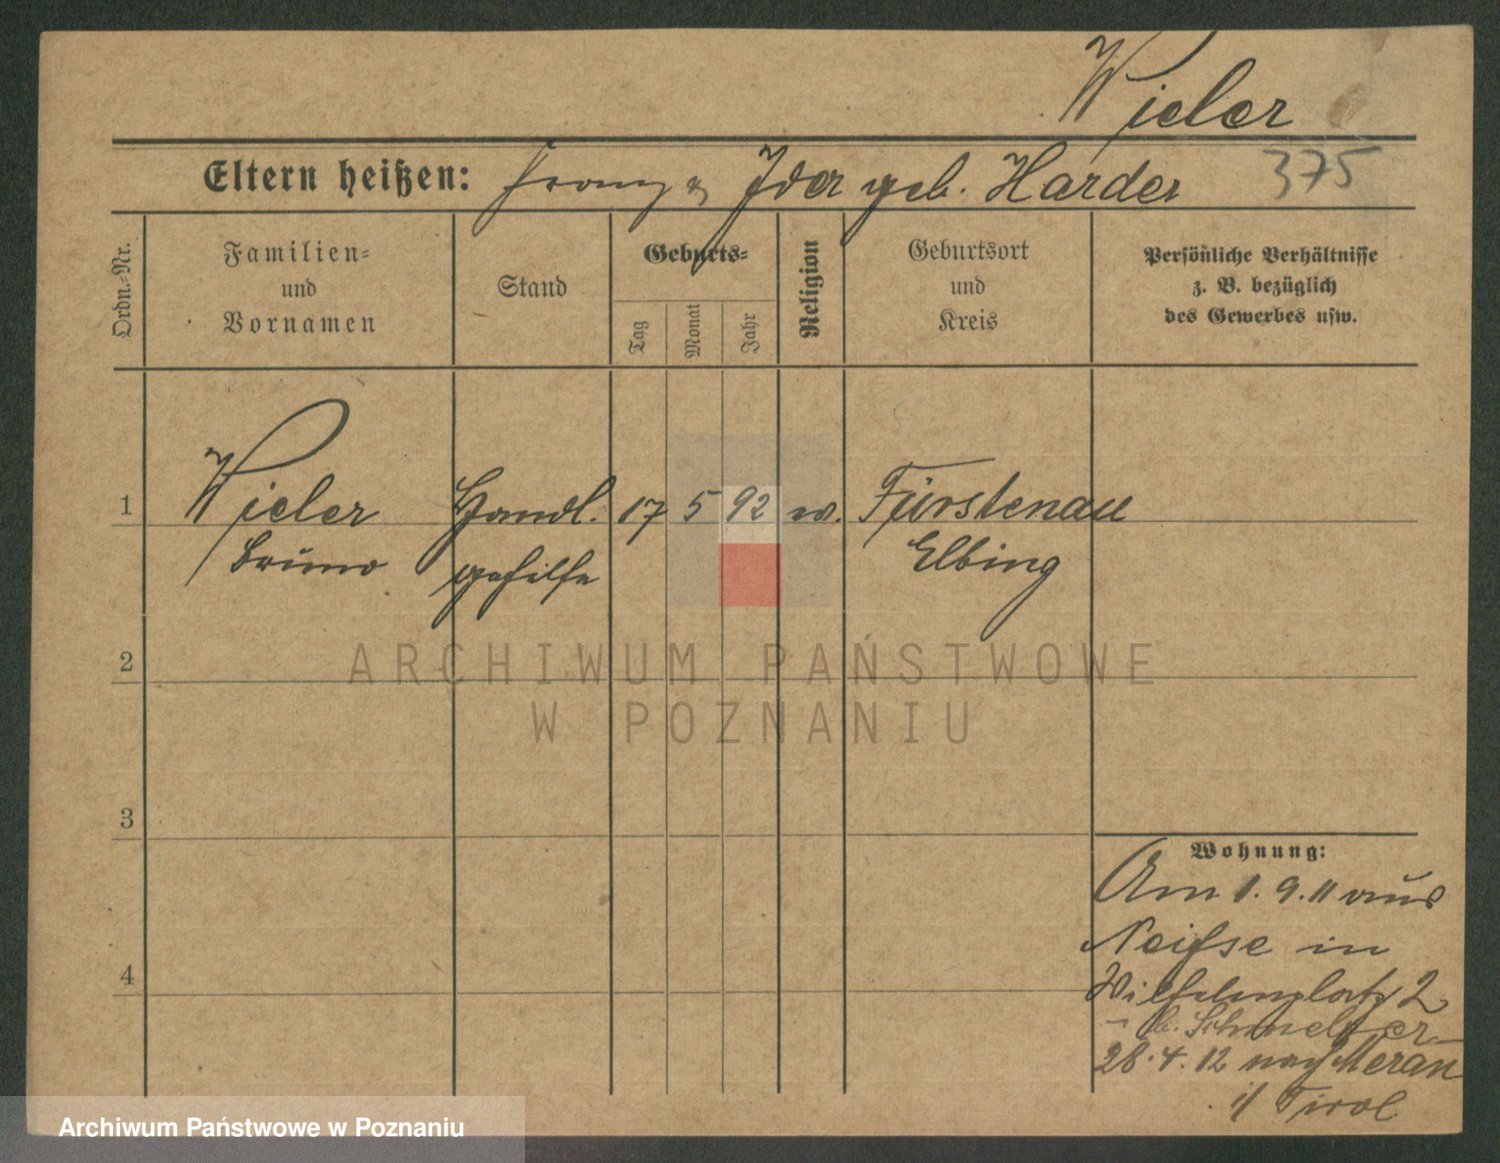 Wieler
Eltern heißen: Franz & Ida geb. Harder 375
Ordn.-Nr.
Familien-
und
Vornamen
Stand
Geburts-
Tag
Monat
Jahr
Religion
Geburtsort
und
Kreis
Persönliche Verhältnisse
z. B. bezüglich
des Gewerbes usw.
1 Wieler Handl. 17 5 92 ev. Fürstenau
Bruno gehilfe Elbing
2
ARCHIWUM PAŃSTWOWE
W POZNANIU
3
Wohnung:
Am 1.9.11 aus
Neisse in
4
Wilhelmplatz 2
b. Schmelzer
28.4.12 nach Meran
i/ Tirol
Archiwum Państwowe w Poznaniu